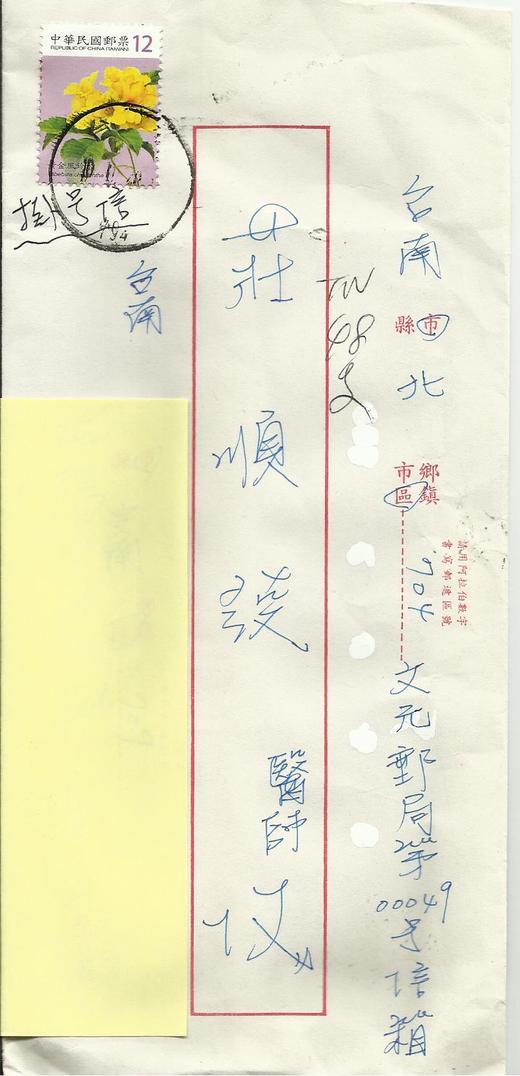 中華民國郵票 12
REPUBLIC OF CHINA (TAIWAN)
掛号信
台南
市
縣
北
鄉鎮
市區
704
文元郵局第
00049
号信箱
請用阿拉伯數字
書寫郵遞區號
TN
48
支
莊順發
醫師
收
台南